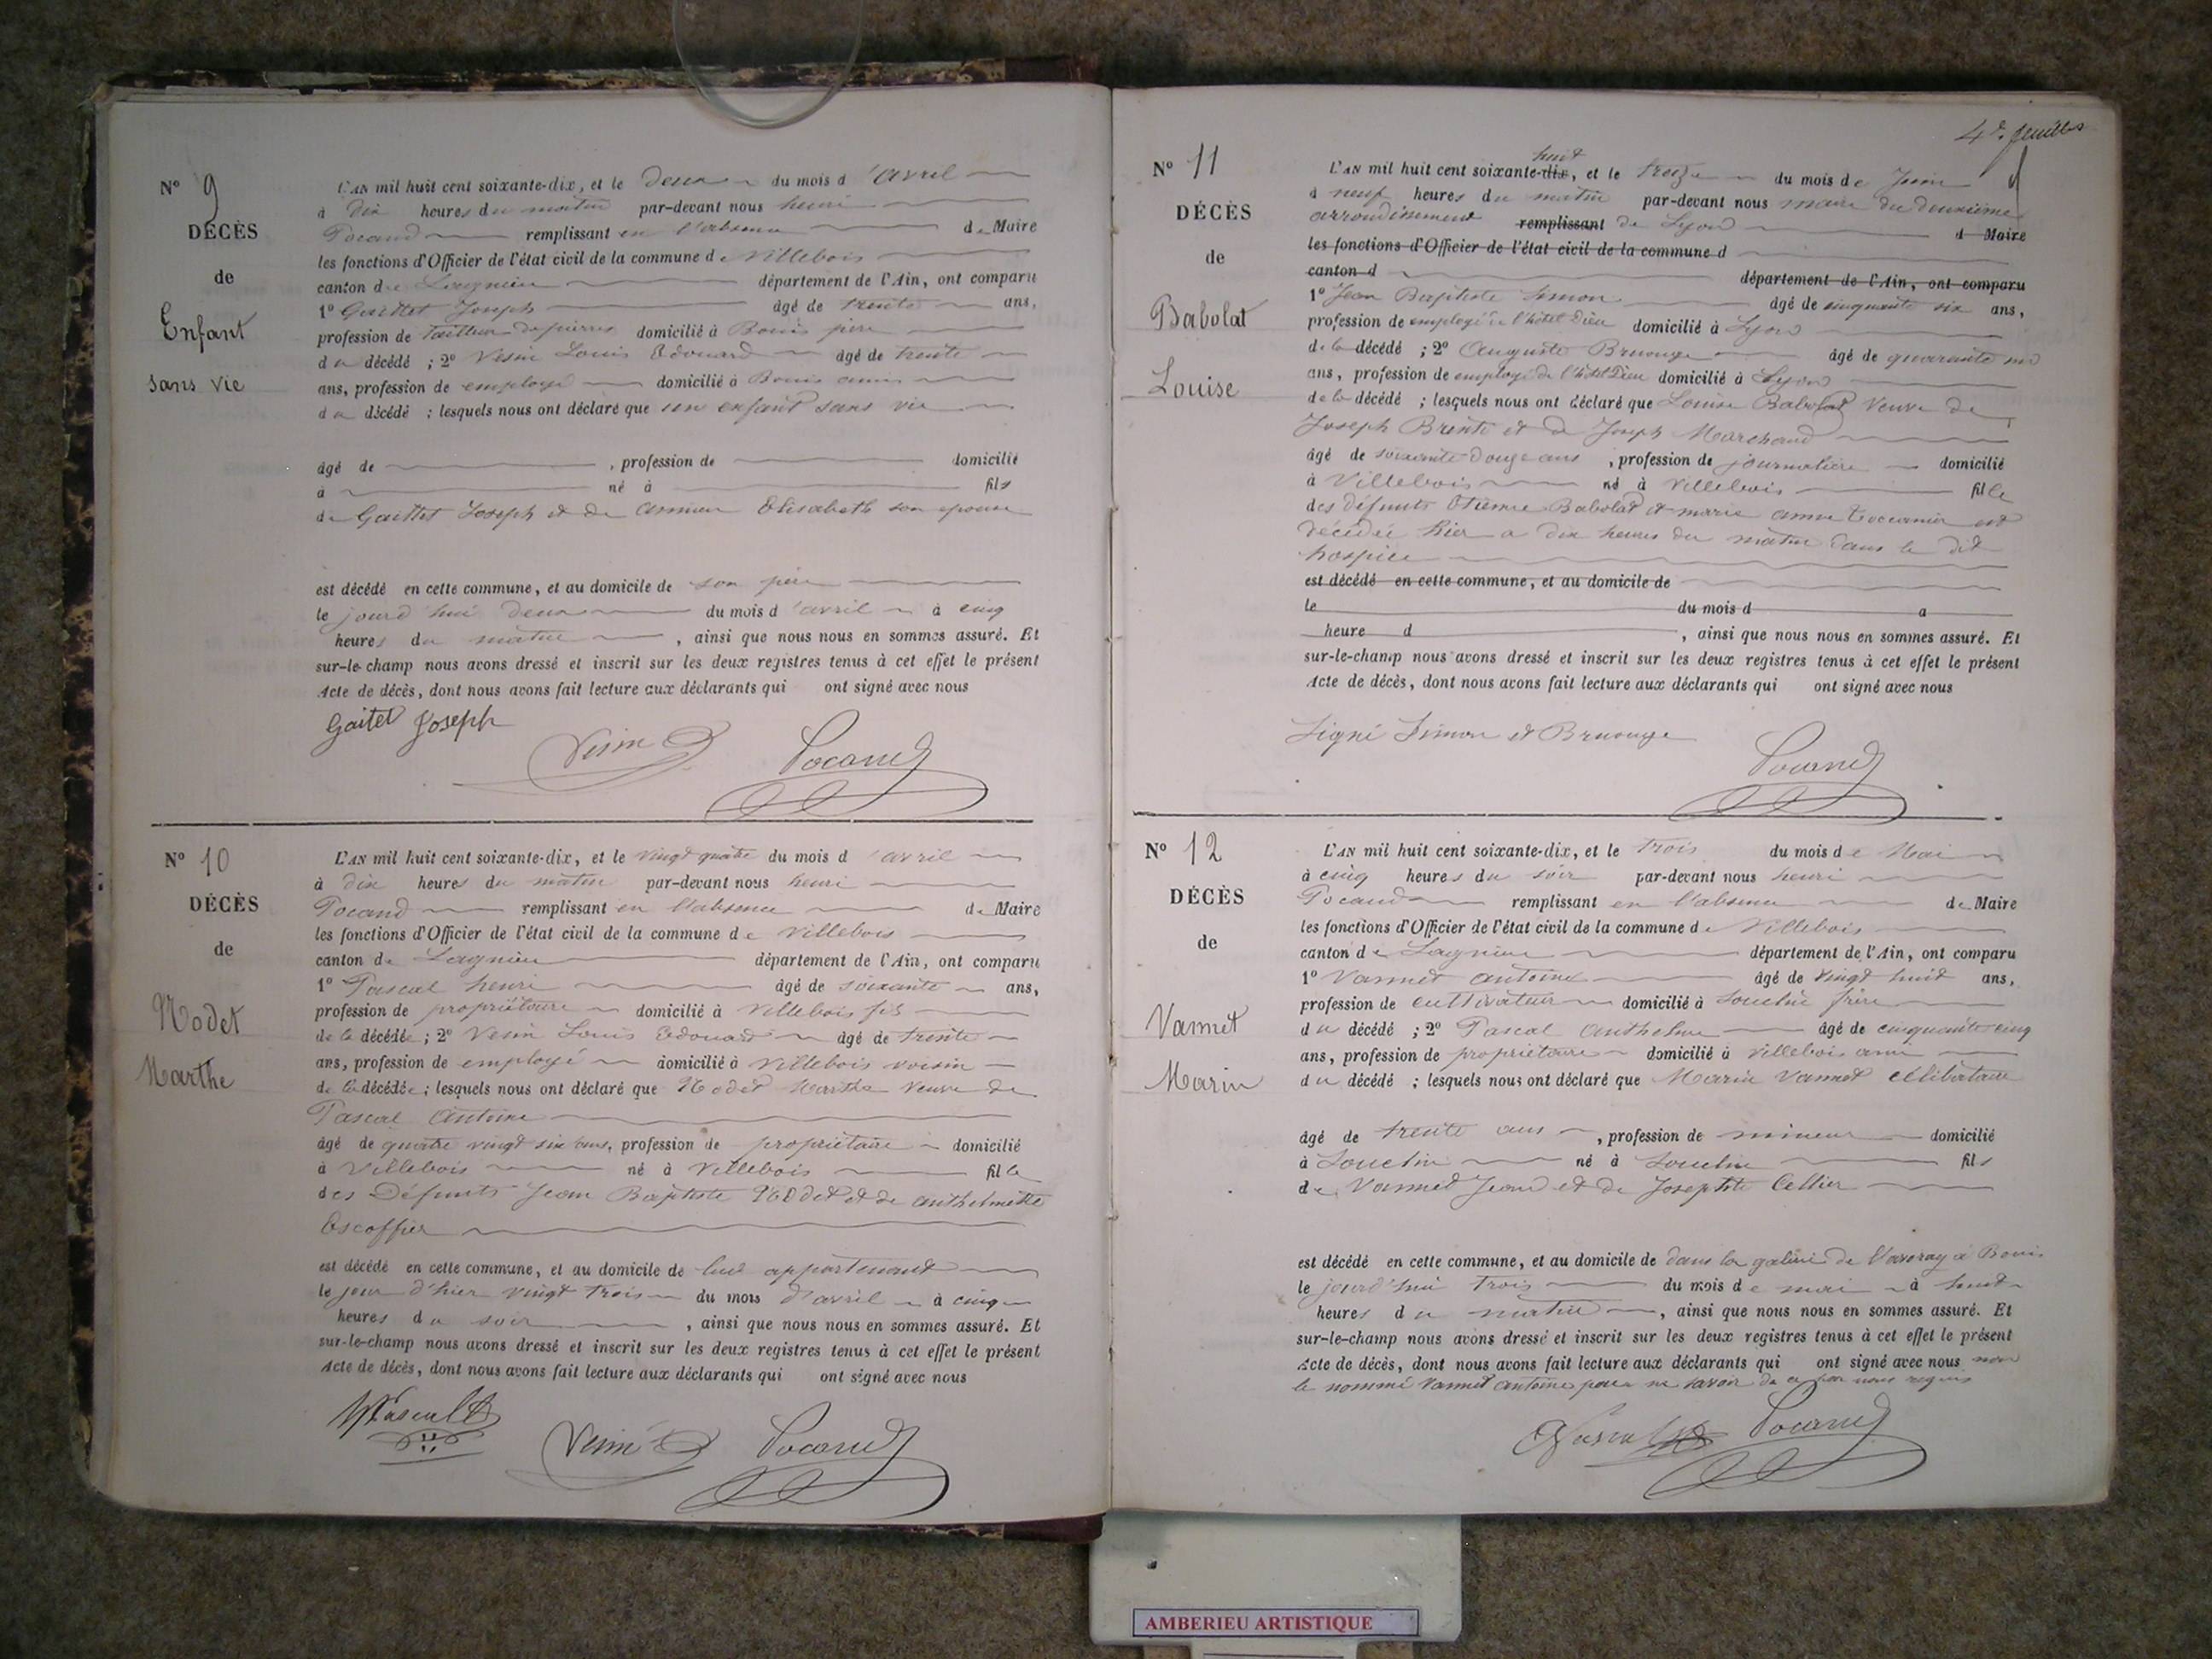 N° 9
DÉCÈS
de
Enfant
sans vie
L'AN mil huit cent soixante-dix, et le deux du mois d'avril
à dix heures du matin par-devant nous henri
Pocand remplissant en l'absence de Maire
les fonctions d'Officier de l'état civil de la commune de Villebois
canton de Lagnieu département de l'Ain, ont comparu
1° Gaittet Joseph âgé de trente ans,
profession de tailleur de pierres domicilié à Bouis père
du décédé ; 2° Vesin Louis Edouard âgé de trente
ans, profession de employé domicilié à Bouis amis
du décédé ; lesquels nous ont déclaré que un enfant sans vie
âgé de , profession de domicilié
à né à fils
de Gaittet Joseph et de Elisabeth son épouse
est décédé en cette commune, et au domicile de son père
le jourd'hui deux du mois d'avril à cinq
heures du matin , ainsi que nous nous en sommes assuré. Et
sur-le-champ nous avons dressé et inscrit sur les deux registres tenus à cet effet le présent
Acte de décès, dont nous avons fait lecture aux déclarants qui ont signé avec nous
Gaitet Joseph
Vesin Pocand
N° 10
DÉCÈS
de
Nodet
Marthe
L'AN mil huit cent soixante-dix, et le vingt quatre du mois d'avril
à dix heures du matin par-devant nous henri
Pocand remplissant en l'absence de Maire
les fonctions d'Officier de l'état civil de la commune de Villebois
canton de Lagnieu département de l'Ain, ont comparu
1° Pascal henri âgé de soixante ans,
profession de propriétaire domicilié à Villebois fils
de la décédée ; 2° Vesin Louis Edouard âgé de trente
ans, profession de employé domicilié à Villebois voisin
de la décédée ; lesquels nous ont déclaré que Nodet Marthe veuve de
Pascal Antoine
âgé de quatre vingt six ans, profession de propriétaire domicilié
à Villebois né à Villebois fille
des Défunts Jean Baptiste Noddet et de anthelmette
Escoffier
est décédé en cette commune, et au domicile de lui appartenant
le jour d'hier vingt trois du mois d'avril à cinq
heures du soir , ainsi que nous nous en sommes assuré. Et
sur-le-champ nous avons dressé et inscrit sur les deux registres tenus à cet effet le présent
Acte de décès, dont nous avons fait lecture aux déclarants qui ont signé avec nous
Pascal
Vesin Pocand
4e feuillet
N° 11
DÉCÈS
de
Babolat
Louise
huit
L'AN mil huit cent soixante-dix, et le treize du mois de Juin
à neuf heures du matin par-devant nous maire du deuxième
arrondissement remplissant de Lyon d Maire
les fonctions d'Officier de l'état civil de la commune d
canton d département de l'Ain, ont comparu
1° Jean Baptiste Simon âgé de cinquante six ans,
profession de employé de l'hôtel Dieu domicilié à Lyon
de la décédé ; 2° Auguste Bruonge âgé de quarante
ans, profession de employé de l'hôtel Dieu domicilié à Lyon
de la décédé ; lesquels nous ont déclaré que Louise Babolat veuve de
Joseph Brinte et de Joseph Marchand
âgé de soixante douze ans , profession de journalière domicilié
à Villebois né à Villebois fille
des défunts Etienne Babolat et marie anne est
décédée hier a dix heures du matin dans le dit
hospice
est décédé en cette commune, et au domicile de
le du mois d à
heure d , ainsi que nous nous en sommes assuré. Et
sur-le-champ nous avons dressé et inscrit sur les deux registres tenus à cet effet le présent
Acte de décès, dont nous avons fait lecture aux déclarants qui ont signé avec nous
Signé Simon et Bruonge
Pocand
N° 12
DÉCÈS
de
Vannet
Marin
L'AN mil huit cent soixante-dix, et le trois du mois de Mai
à cinq heures du soir par-devant nous henri
Pocand remplissant en l'absence de Maire
les fonctions d'Officier de l'état civil de la commune de Villebois
canton de Lagnieu département de l'Ain, ont comparu
1° Vannet antoine âgé de vingt huit ans,
profession de cultivateur domicilié à Souclin frère
du décédé ; 2° Pascal Anthelme âgé de cinquante cinq
ans, profession de propriétaire domicilié à Villebois ami
du décédé ; lesquels nous ont déclaré que Marin Vannet célibataire
âgé de trente ans , profession de mineur domicilié
à Souclin né à Souclin fils
de Vannet Jean et de Josephte Cellier
est décédé en cette commune, et au domicile de dans la galerie de à Bouis
le jourd'hui trois du mois de mai à huit
heures du matin , ainsi que nous nous en sommes assuré. Et
sur-le-champ nous avons dressé et inscrit sur les deux registres tenus à cet effet le présent
Acte de décès, dont nous avons fait lecture aux déclarants qui ont signé avec nous non
le nommé Vannet antoine pour ne savoir de ce par nous requis
Pascal Pocand
AMBERIEU ARTISTIQUE